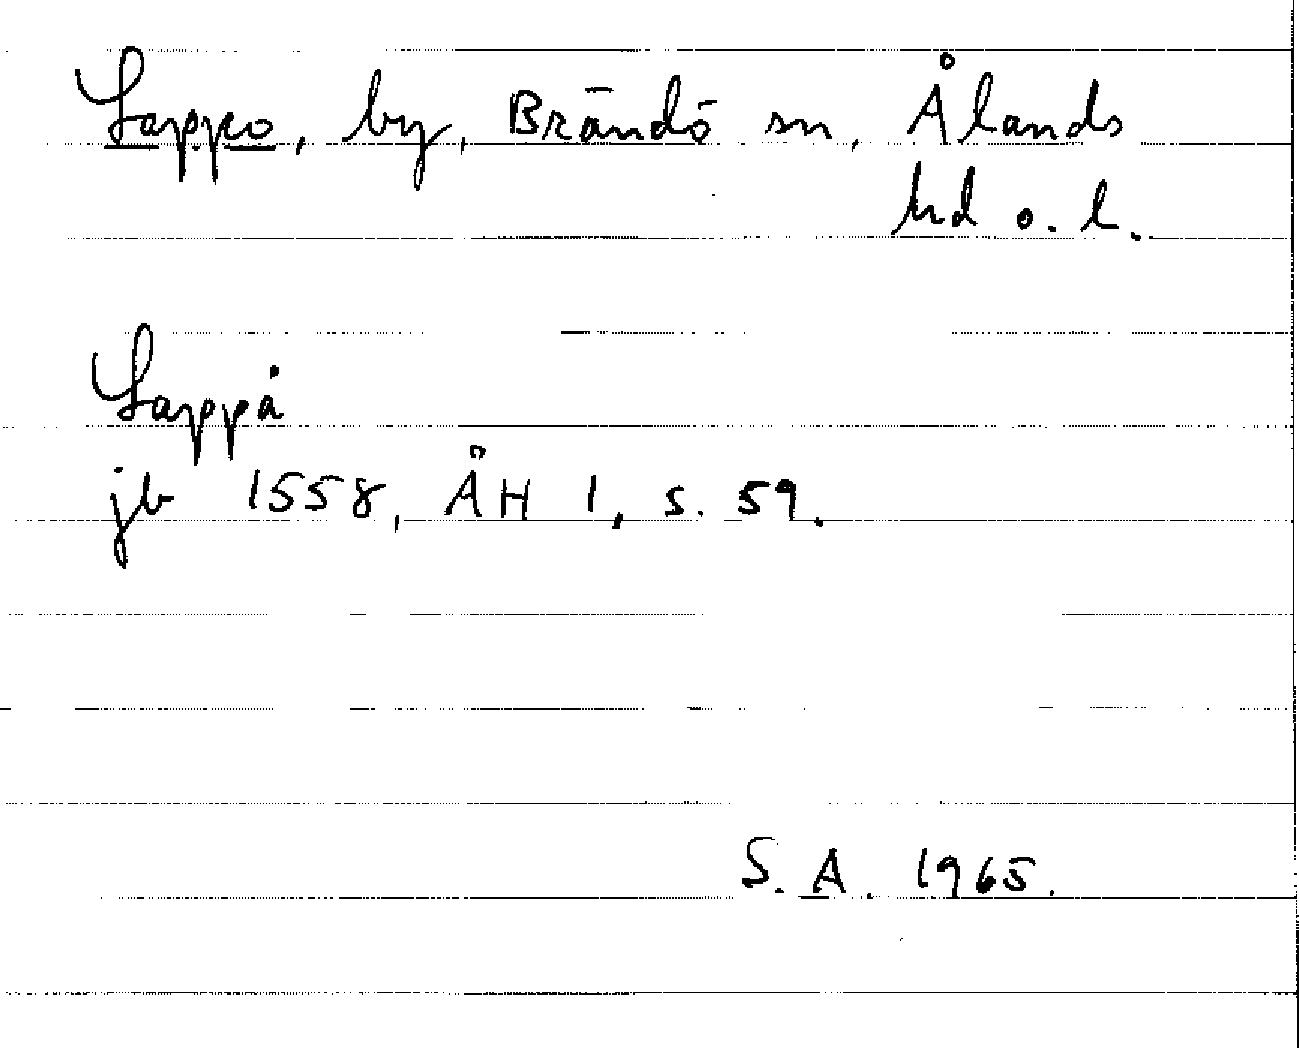 Lappo, by, Brändö sn, Ålands
hd o. l.
Lappå
jb 1558, ÅH 1, s. 59.
S. A. 1965.